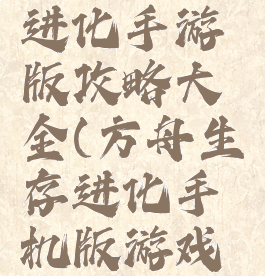 进化手游
版攻略大
全(方舟生
存进化手
机版游戏